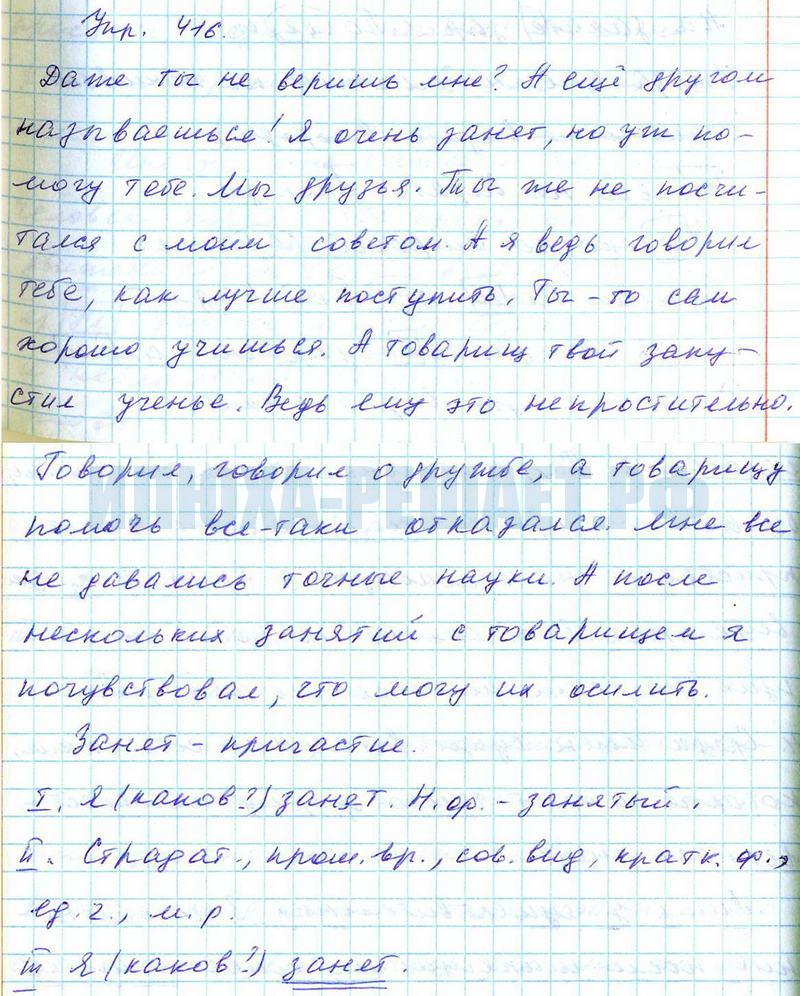 Упр. 416.
Даже ты не веришь мне? А ещё другом
называешься! Я очень занят, но уж по-
могу тебе. Мы друзья. Ты же не посчи-
тался с моим советом. А я ведь говорил
тебе, как лучше поступить. Ты-то сам
хорошо учишься. А товарищ твой запу-
стил ученье. Ведь ему это непростительно.
Говорил, говорил о дружбе, а товарищу
помочь все-таки отказался. Мне все
не давались точные науки. А после
нескольких занятий с товарищем я
почувствовал, что могу их осилить.
Занят - причастие.
I. Я (каков?) занят. Н.ф. - занятый.
II. Страдат., прош. вр., сов. вид, кратк. ф.,
ед. ч., м. р.
III Я (каков?) занят.
ИЛЮХА-РЕШАЕТ.РФ